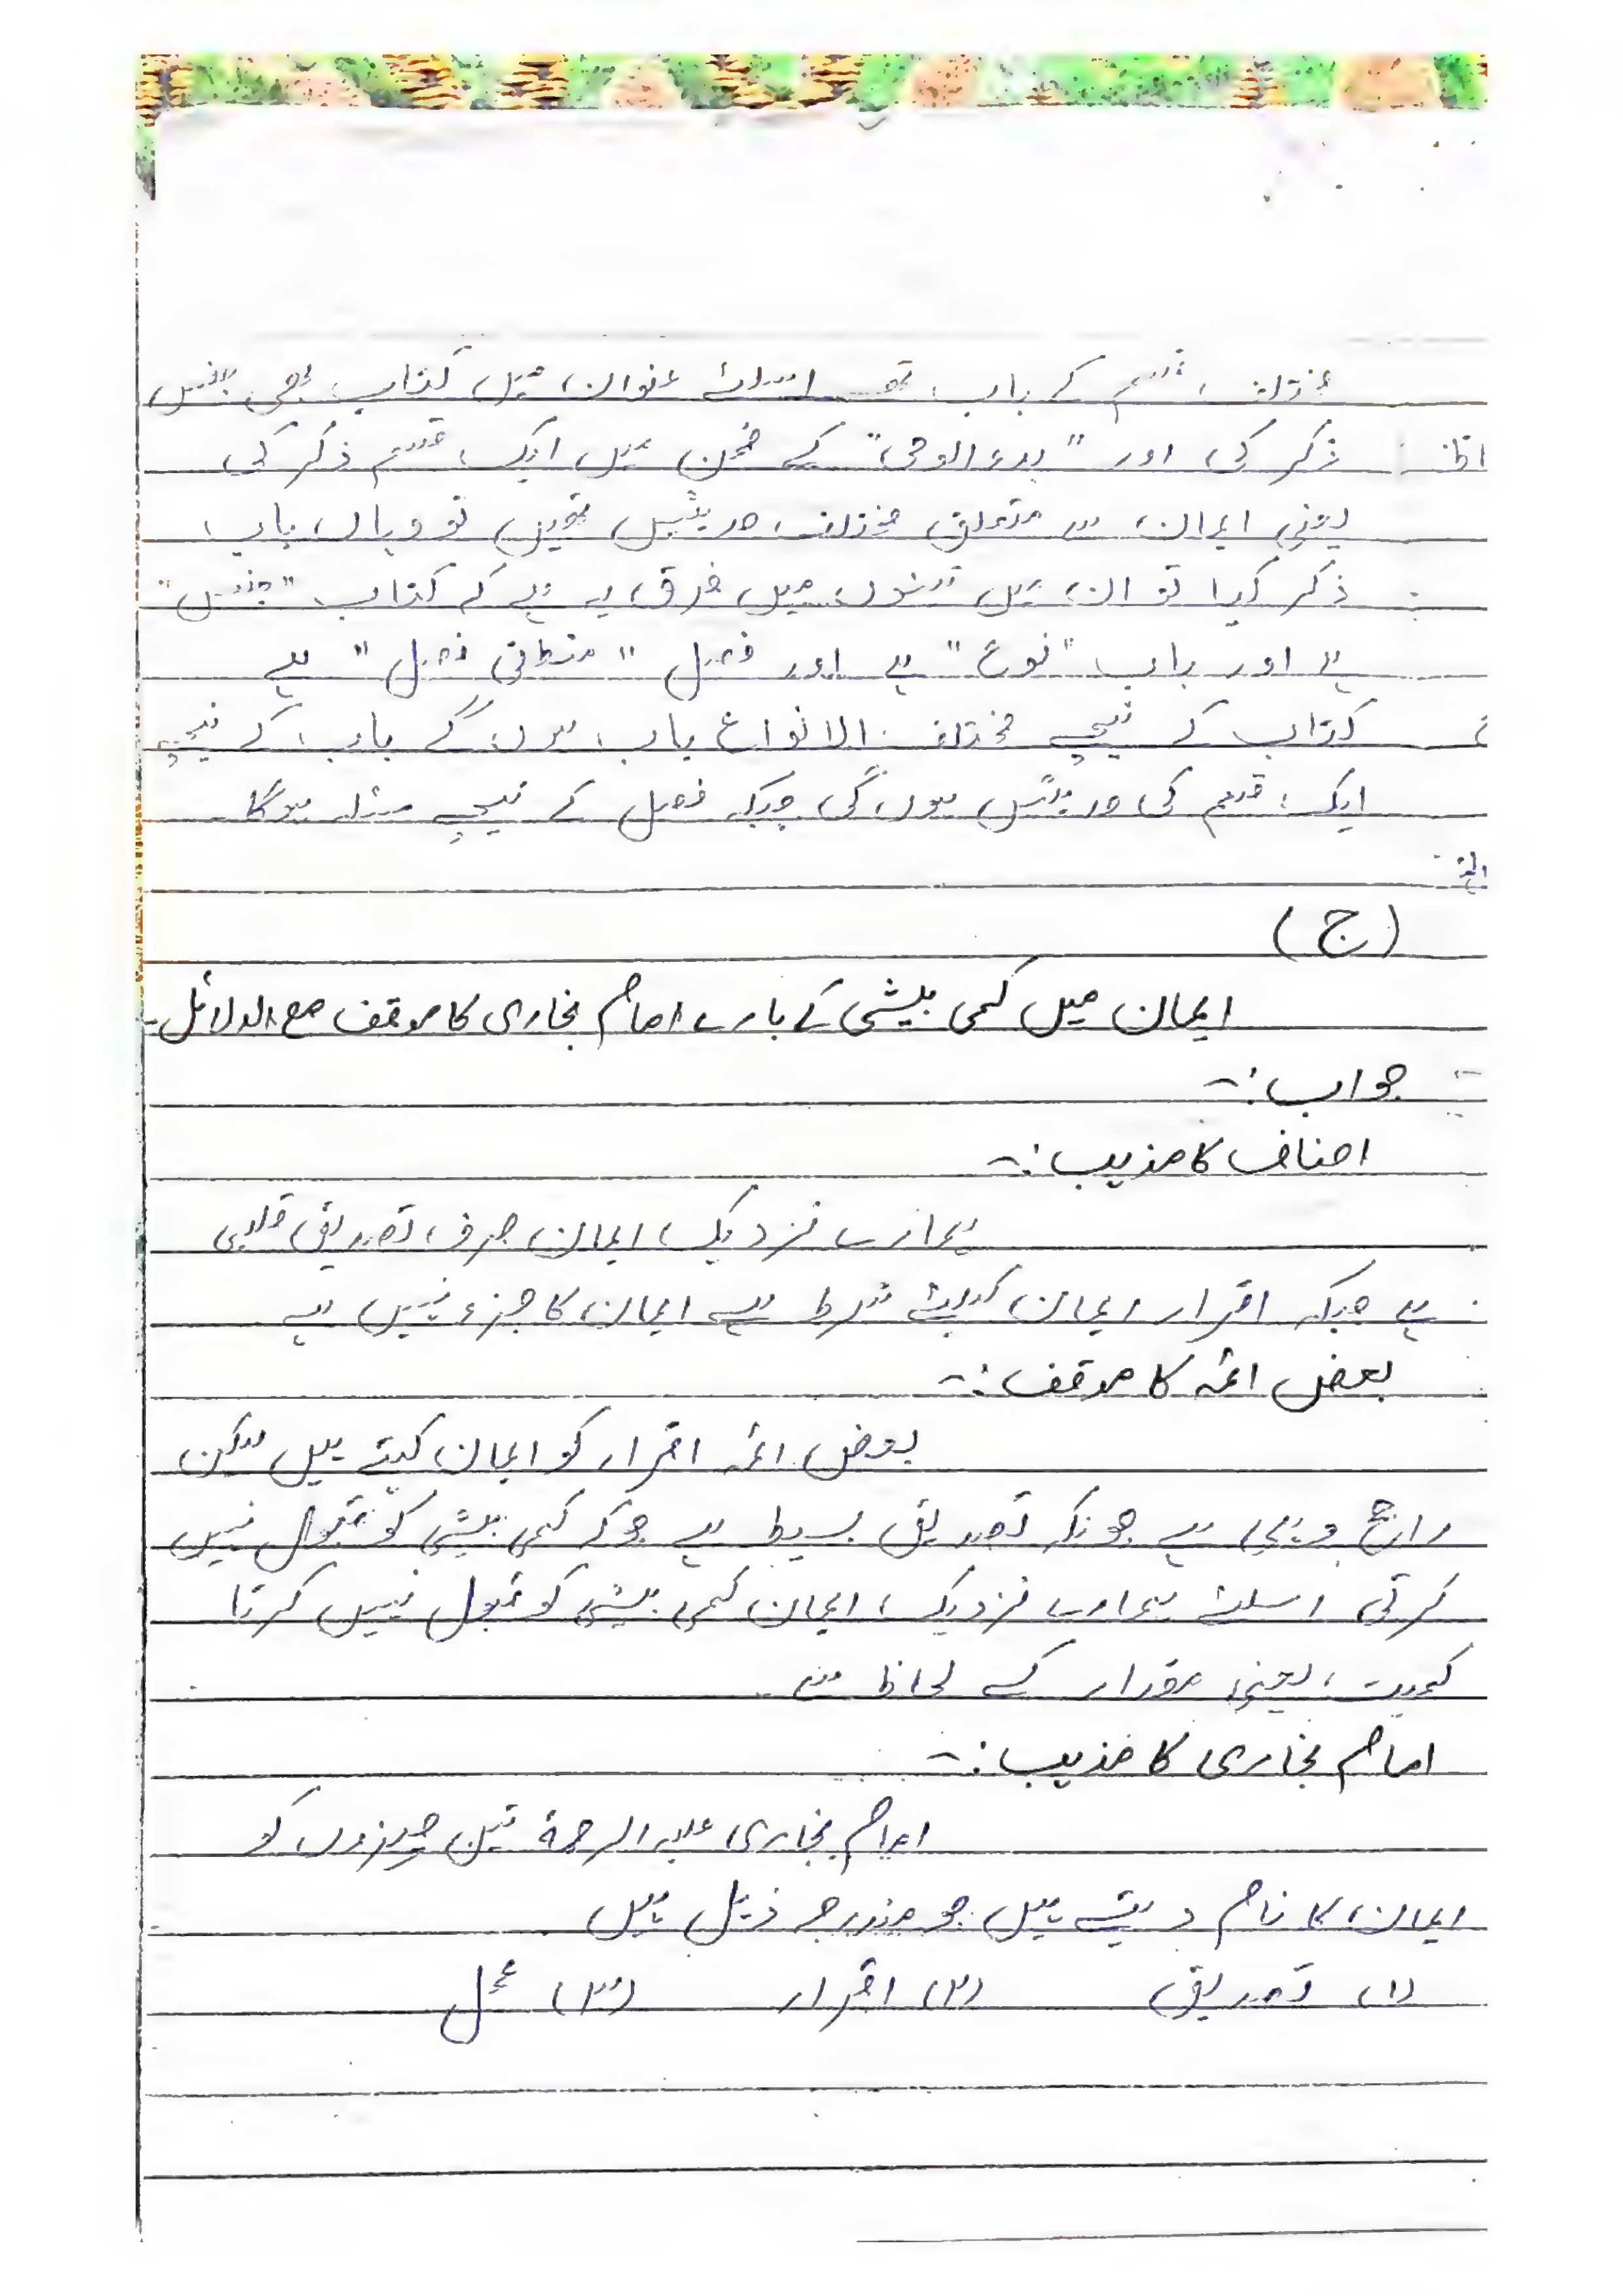 مختلف قسم کے باب تھے اسلئے عنوان میں کتاب یعنی جنس
ذکر کی اور "بدء الوحی" کے ضمن میں ایک قسم ذکر کی
یعنی ایمان سے متعلق مختلف حدیثیں تھیں تو وہاں باب
ذکر کیا تو ان تینوں میں فرق یہ ہے کہ کتاب "جنس"
ہے اور باب "نوع" ہے اور فصل "منطقی فصل" ہے
کتاب کے نیچے مختلف الانواع باب ہوں گے باب کے نیچے
ایک قسم کی حدیثیں ہوں گی جبکہ فصل کے نیچے مسئلہ ہوگا
(ج)
ایمان میں کمی بیشی کے بارے امام بخاری کا موقف مع الدلائل۔
جواب:۔
احناف کا مذہب:۔
ہمارے نزدیک ایمان صرف تصدیق قلبی
ہے جبکہ اقرار ایمان کیلئے شرط ہے ایمان کا جزء نہیں ہے
بعض ائمہ کا موقف:۔
بعض ائمہ اقرار کو ایمان کہتے ہیں لیکن
راجح وہی ہے چونکہ تصدیق بسیط ہے جو کہ کمی بیشی کو قبول نہیں
کرتی اسلئے ہمارے نزدیک ایمان کمی بیشی کو قبول نہیں کرتا
کمیت یعنی مقدار کے لحاظ سے۔
امام بخاری کا مذہب:۔
امام بخاری علیہ الرحمۃ تین چیزوں کو
ایمان کا نام دیتے ہیں جو مندرجہ ذیل ہیں
(۱) تصدیق (۲) اقرار (۳) عمل